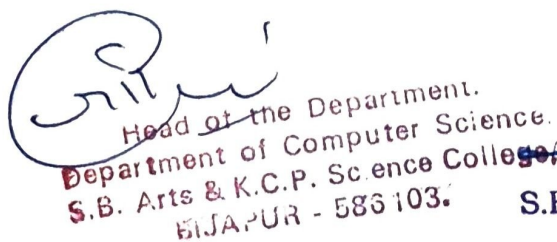 Head of the Department.
Department of Computer Science.
S.B. Arts & K.C.P. Science College
BIJAPUR - 586103.
S.B